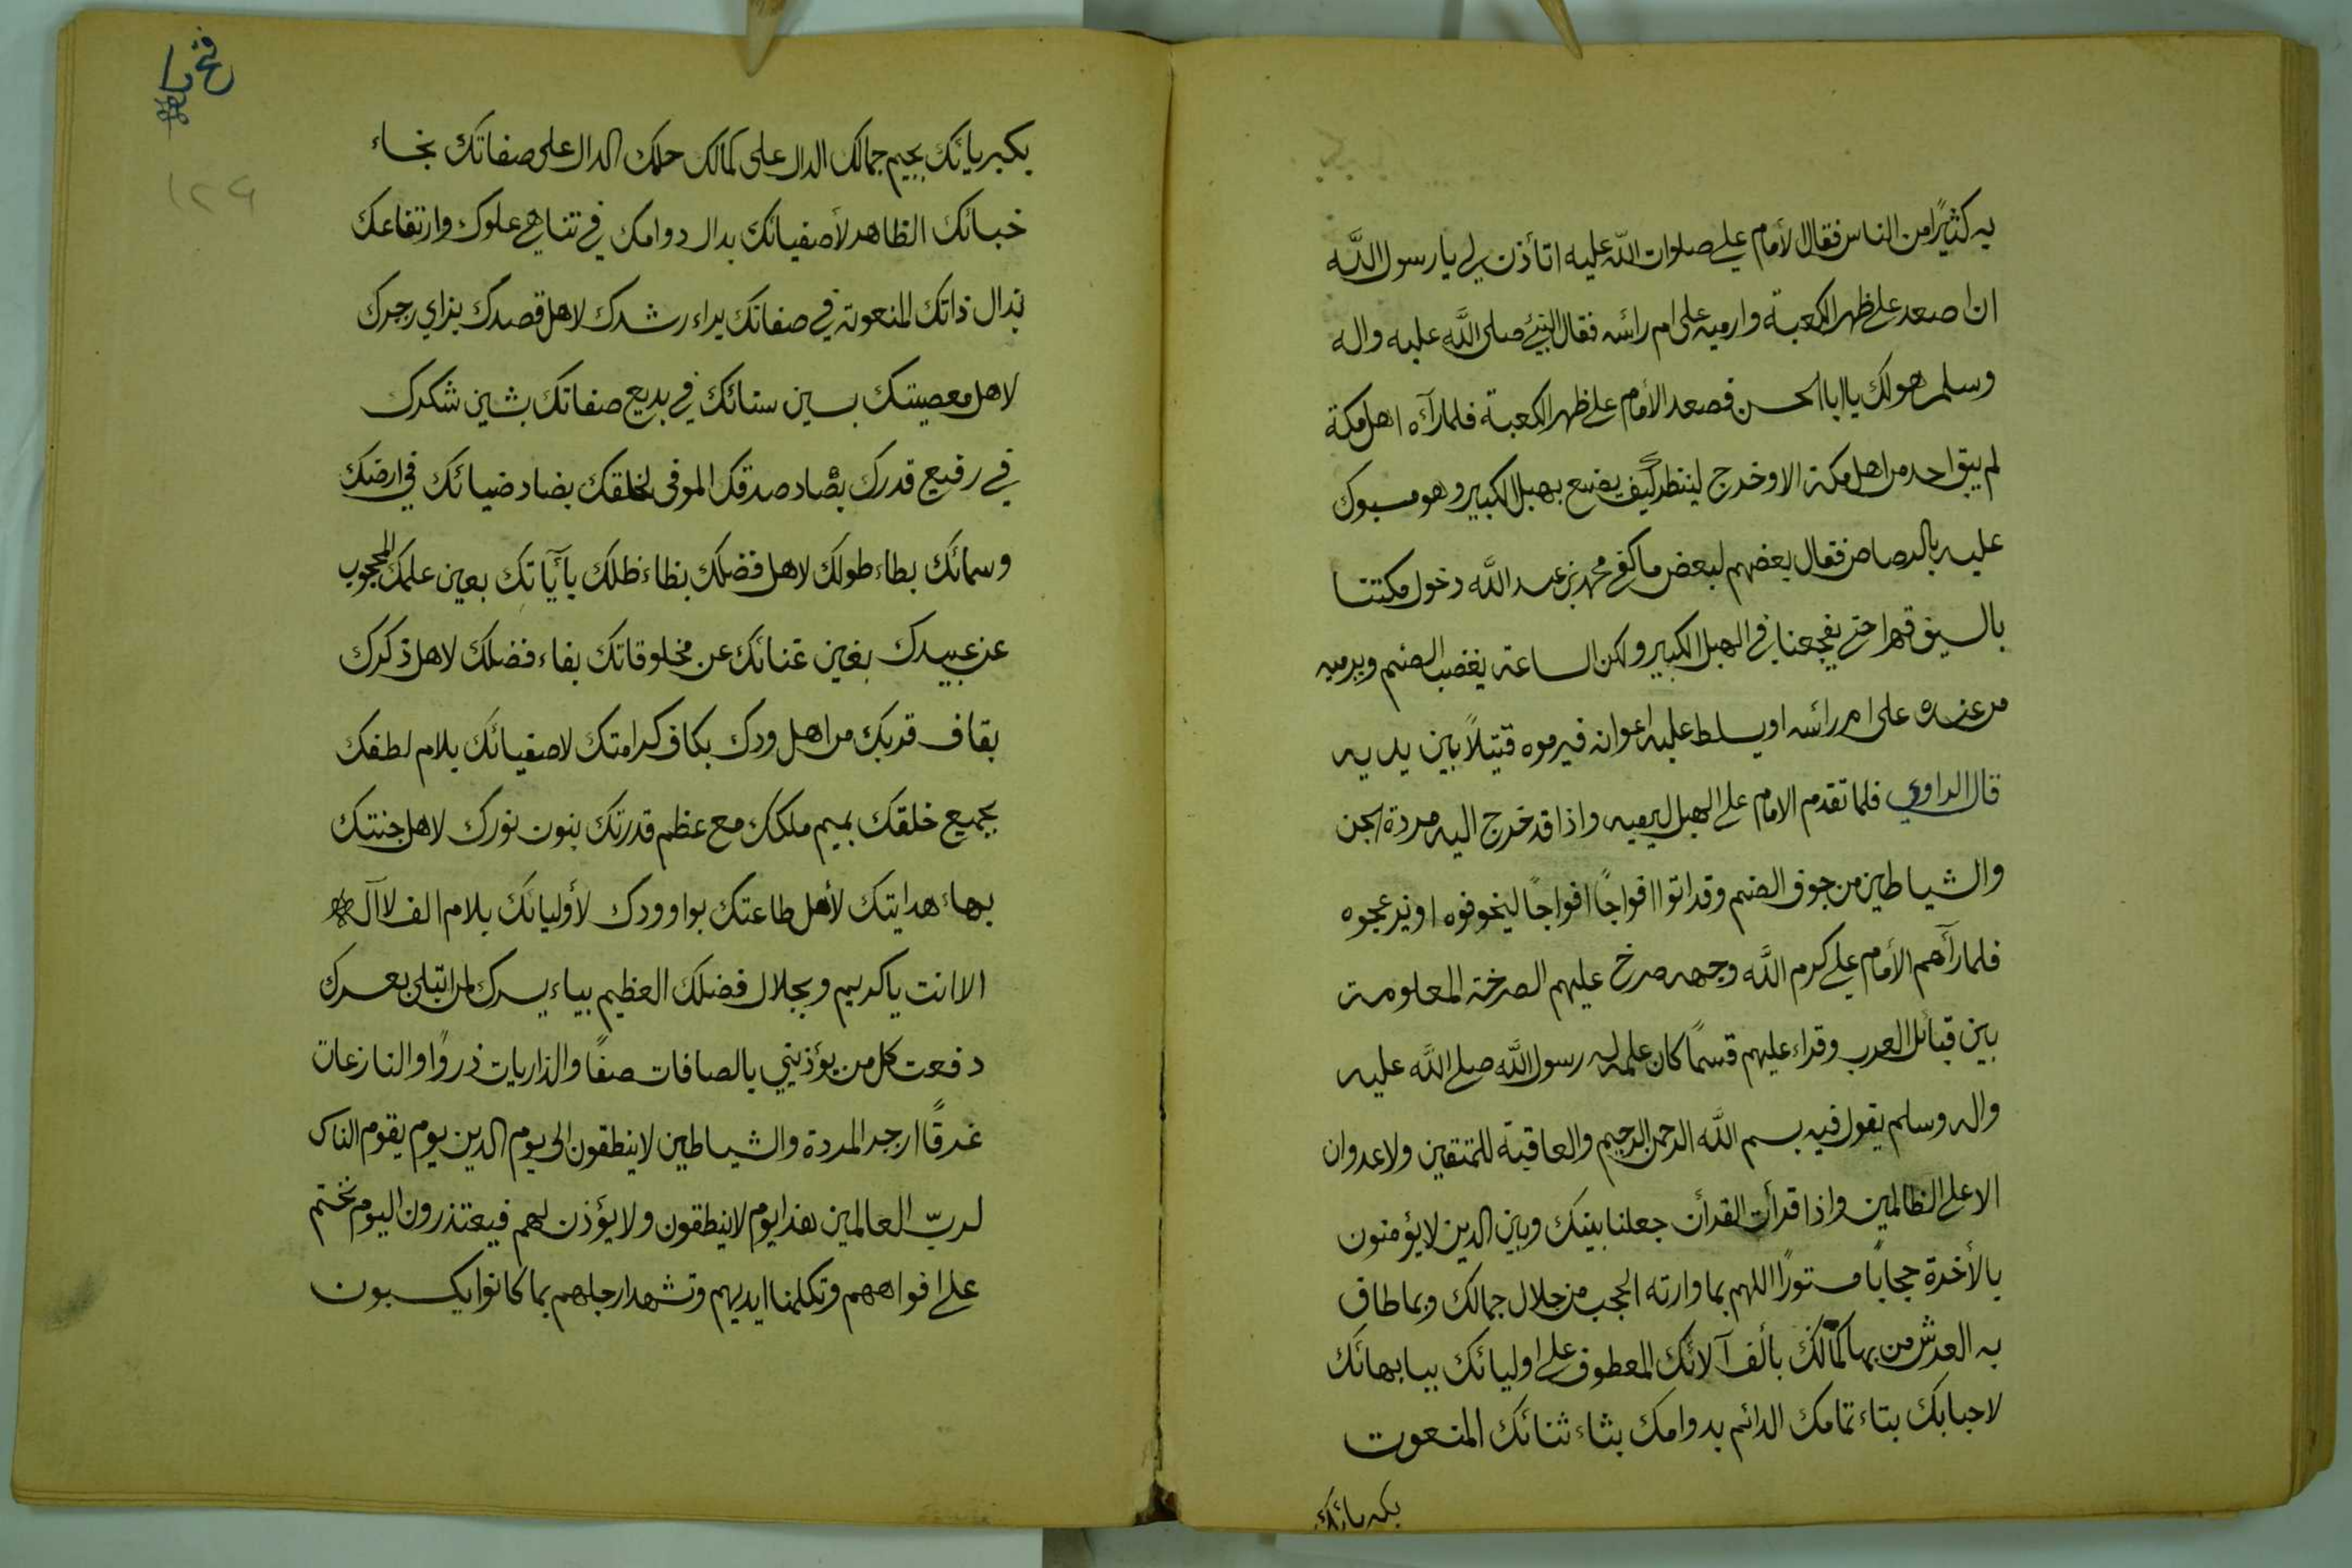 به كثيرًا من الناس فقال الأمام علي صلوات اللّه عليه اتأذن لي يا رسول اللَّه
ان اصعد على ظهر الكعبة وارميه على ام رائسه فقال النبيّ صلى اللَّه عليه واله
وسلم هو لك يا ابا الحسن فصعد الأمام على ظهر الكعبة فلما رآه اهل مكة
لم يبق احد من اهل مكة الا وخرج لينظر كيف يصنع بهبل الكبير وهو مسبوك
عليه بالرصاص فقال بعضهم لبعض ما كفى محمد بن عبد اللَّه دخول مكتنا
بالسيف قهرا حتى يفجعنا في الهبل الكبير ولكن الساعة يغضب الصنم ويرميه
من عنده على ام رائسه او يسلط عليه اعوانه فيرموه قتيلاً بين يديه
قال الراوي فلما تقدم الامام على الهبل ليرميه واذا قد خرج اليه مردة الجن
والشياطين من جوف الصنم وقد اتوا افواجًا افواجًا ليخوفوه او يزعجوه
فلما رآهم الأمام علي كرم اللَّه وجهه صرخ عليهم الصرخة المعلومة
بين قبائل العرب وقراء عليهم قسمًا كان علمه له رسول اللَّه صلى اللَّه عليه
واله وسلم يقول فيه بسم اللَّه الرحمن الرجيم والعاقبة للمتقين ولا عدوان
الا على الظالمين واذا قرأت القرأن جعلنا بينك وبين الذين لا يؤمنون
بالأخرة حجابًا مستورًا اللهم بما وارته الحجب من جلال جمالك وبما طاف
به العرش من بها كمالك بألف آلائك المعطوف على اوليائك ببا بهائك
لاحبابك بتاء تمامك الدائم بدوامك بثاء ثنائك المنعوت
بكبريائك
فتح با
١٢٩
بكبريائك بجيم جمالك الدال على كمالك حلمك الدال على صفاتك بخاء
خبائك الظاهر لأصفيائك بدال دوامك في تناهي علوك وارتفاعك
بذال ذاتك المنعوتة في صفاتك براء رشدك لاهل قصدك بزاي زجرك
لاهل معصيتك بسين سنائك في بديع صفاتك بشين شكرك
في رفيع قدرك بصاد صدقك الموفى لخلقك بضاد ضيائك في ارضك
وسمائك بطاء طولك لاهل فضلك بظاء ظلك بأٓيٓاتك بعين علمك المحجوب
عن عبيدك بغين غنائك عن مخلوقاتك بفاء فضلك لاهل ذكرك
بقاف قربك من اهل ودك بكاف كرامتك لاصفيائك بلام لطفك
بجميع خلقك بميم ملكك مع عظم قدرتك بنون نورك لاهل جنتك
بهاء هدايتك لأهل طاعتك بواو ودك لأوليائك بلام الف لا آله
الا انت يا كريم وبجلال فضلك العظيم بياء يسرك لمن ابتلى بعسرك
دفعت كل من يؤذيني بالصافات صفًا والذاريات ذروًا والنازعات
غرقًا ازجر المردة والشياطين لا ينطقون الى يوم الدين يوم يقوم الناس
لربّ العالمين هذا يوم لا ينطقون ولا يؤذن لهم فيعتذرون اليوم نختم
على افواههم وتكلمنا ايديهم وتشهد ارجلهم بما كانوا يكسبون